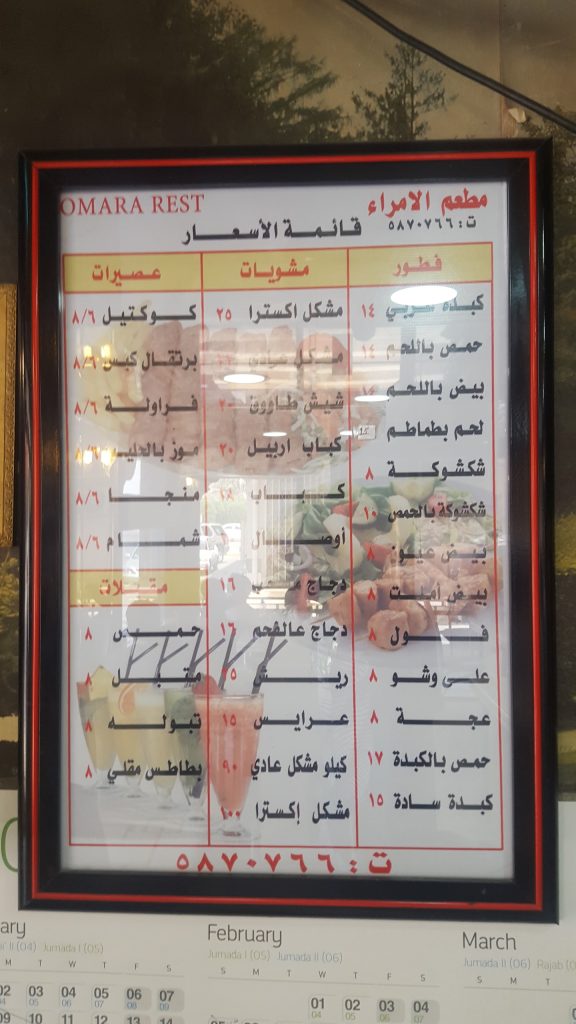 OMARA REST
مطعم الامراء
ت: ٥٨٧٠٧٦٦
قائمة الأسعار
فطور
كبدة ١٤
حمص باللحم ١٤
بيض باللحم
لحم بطماطم
شكشوكة ٨
شكشوكة بالحمص ١٠
بيض عيون ٨
بيض أملت ٨
فول ٨
على وشو ٨
عجة ٨
حمص بالكبدة ١٧
كبدة سادة ١٥
مشويات
مشكل اكسترا ٢٥
مشكل عادي
شيش طاووق
كباب اربيل ٢٠
كباب ١٨
أوصال
دجاج ١٦
دجاج عالفحم ١٦
ريش
عرايس ١٥
كيلو مشكل عادي ٩٠
مشكل إكسترا ١٠٠
عصيرات
كوكتيل ٨/٦
برتقال كبس ٨/٦
فراولة ٨/٦
موز بالحليب ٨/٦
منجا ٨/٦
شمام ٨/٦
مقبلات
حميص ٨
متبل ٨
تبوله ٨
بطاطس مقلي ٨
ت: ٥٨٧٠٧٦٦
ary
II (04) Jumada I (05)
M T W T F S
02 03 04 05 06 07
09 10 11 12 13 14
February
Jumada I (05) Jumada II (06)
S M T W T F S
01 02 03 04
March
Jumada II (06) Rajab
S M T